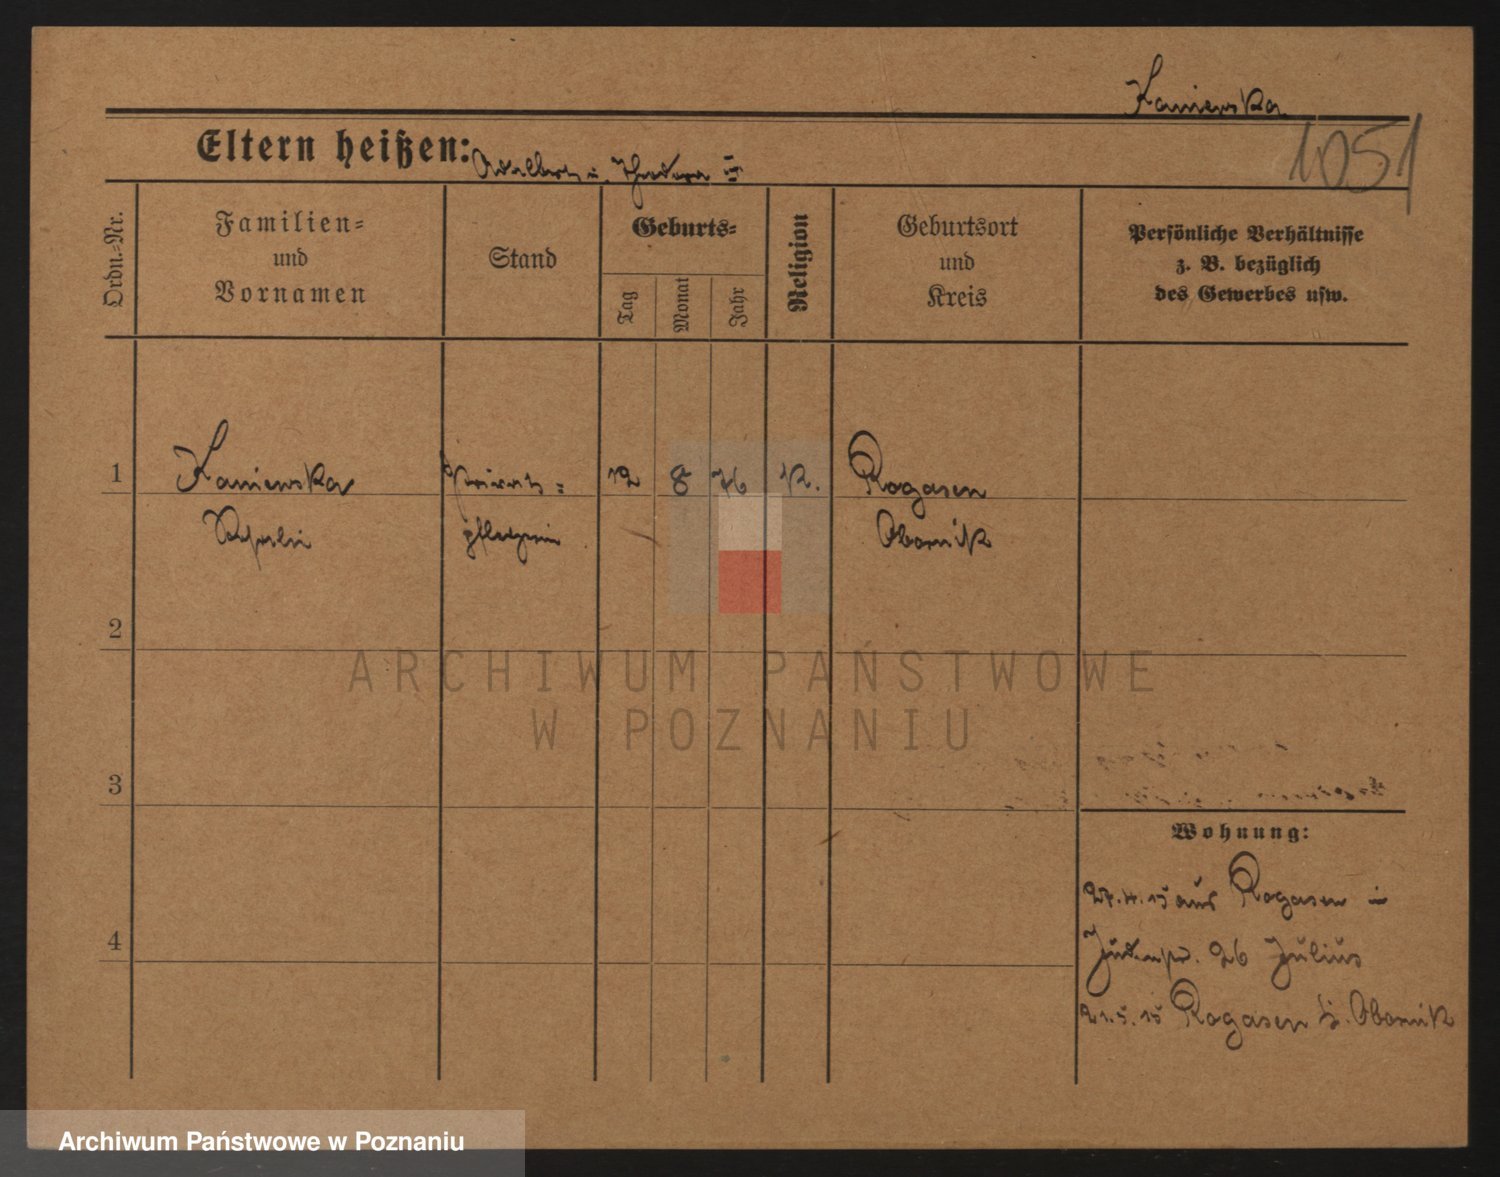 Kaniewska
1051
Eltern heißen: Adalbert u. Theodora
Ordn.-Nr.
Familien-
und
Vornamen
Stand
Geburts-
Tag
Monat
Jahr
Religion
Geburtsort
und
Kreis
Persönliche Verhältnisse
z. B. bezüglich
des Gewerbes usw.
1
Kaniewska
Privat-
pflegerin
12 8 76 K.
Rogasen
Obornik
2
ARCHIWUM PAŃSTWOWE
W POZNANIU
3
Wohnung:
27.4.15 aus Rogasen in
Judenstr. 26 Julius
4
21.5.15 Rogasen Obornik
Archiwum Państwowe w Poznaniu